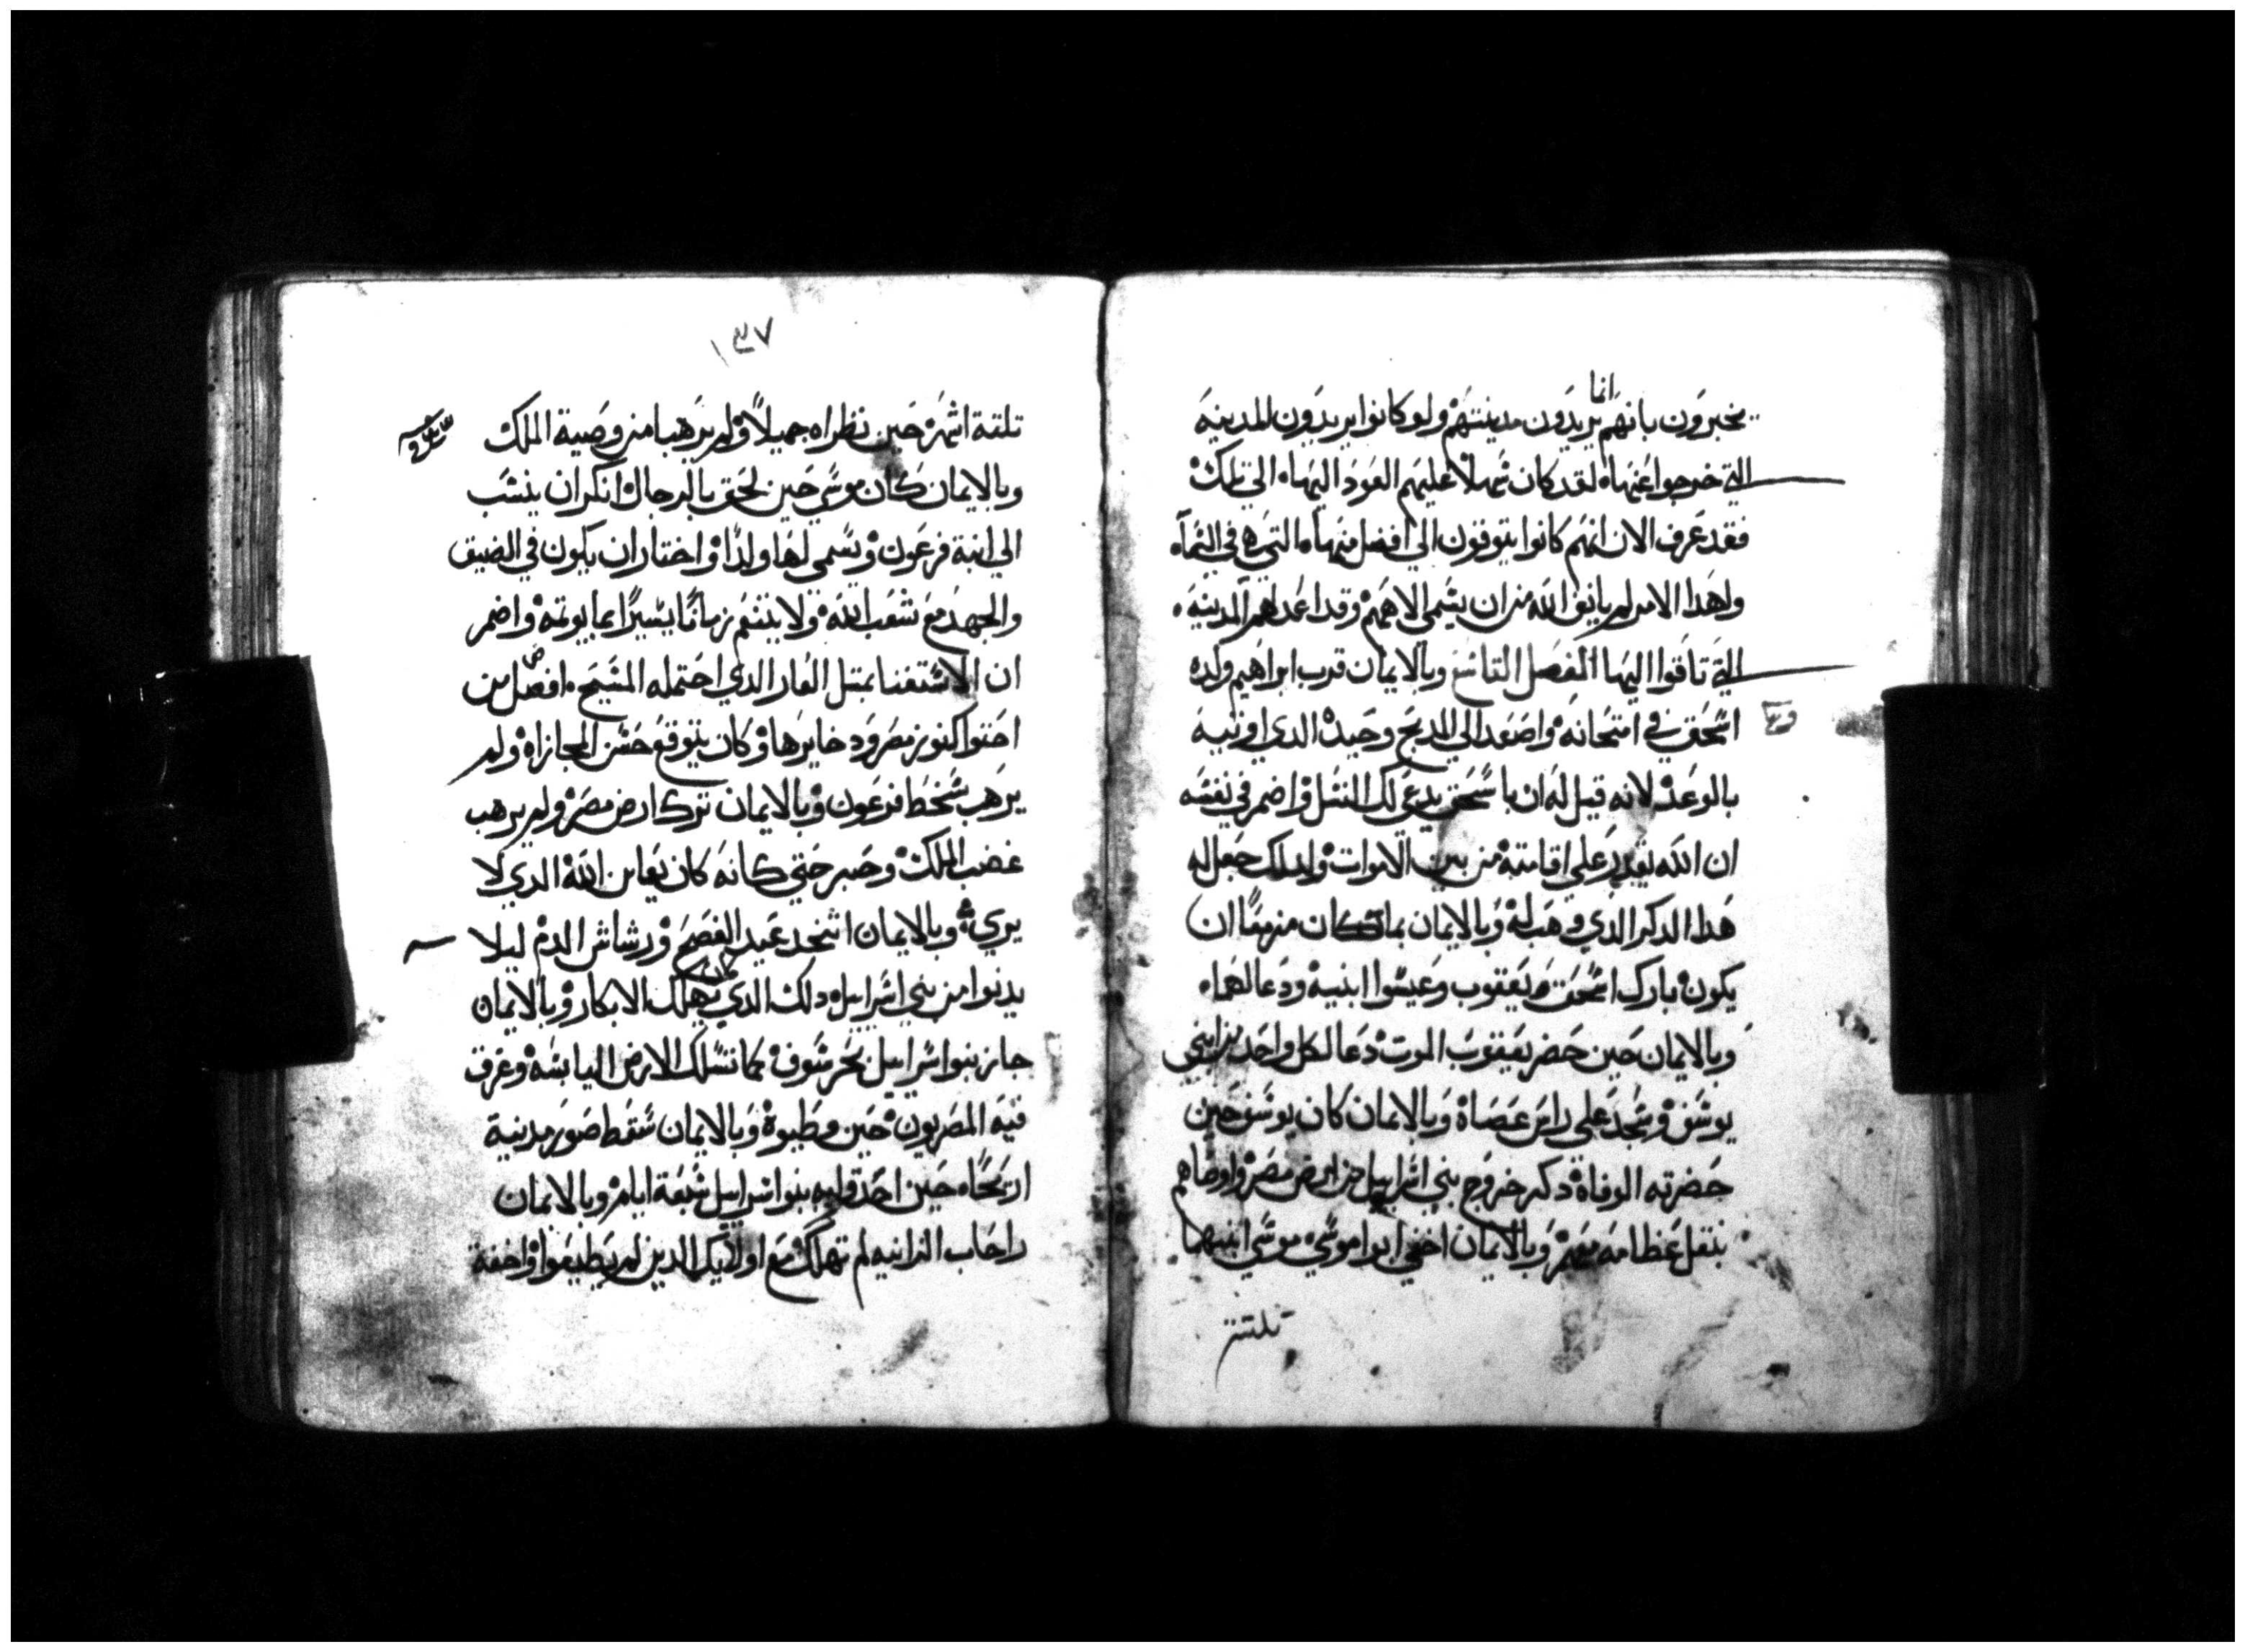 انما
يخبرون بانهم يريدون مدينتهم ولو كانوا يريدون المدينة
التي خرجوا عنها لقد كان سهلا عليهم العود اليها الي تلك
فقد عرف الان انهم كانوا يتوقون الي افضل منها التي هي في السماء
ولهدا الامر لم يانف الله من ان يسمي الاههم وقد اعد لهم المدينة
التي تاقوا اليها الفصل التاسع وبالايمان قرب ابراهيم ولده
اسحق في امتحانه واصعد الي الدبح وحيده الدي اوتيه
بالوعد لانه قيل له ان باسحق يدعي لك النسل واضمر في نفسه
ان الله يقدر علي اقامته من بين الاموات ولدلك جعل له
هدا الدكر الدي وهب له وبالايمان بما كان مزمعا ان
يكون بارك اسحق يعقوب وعيسوا ابنيه ودعا لهما
وبالايمان حين حضر يعقوب الموت دعا لكل واحد من ابني
يوسف وسجد علي راس عصاه وبالايمان كان يوسف حين
حضرته الوفاة دكر خروج بني اسراييل من ارض مصر واوصاهم
بنقل عظامه معهم وبالايمان اخفي ابوا موسي موسي ابنهما
تلتة
١٤٧
تلتة اشهر حين نظراه جميلا ولم يرهبا من وصية الملك
وبالايمان كان موسي حين لحق بالرجال انكر ان ينسب
الي ابنة فرعون ويسمي لها ولدا واختار ان يكون في الضيق
والجهد مع شعب الله ولا يتنعم زمانا يسيرا بما يوتمه واضمر
ان الاستغنا بمتل العار الدي احتمله المسيح افضل من
احتوا كنوز مصر ودخايرها وكان يتوقع حسن المجازاه ولم
يرهب سخط فرعون وبالايمان ترك ارض مصر ولم يرهب
غضب الملك وصبر حتي كانه كان يعاين الله الدي لا
يري وبالايمان اتخد عيد الفصح ورشاش الدم ليلا
يدنوا من بني اسراييل دلك الدي يهلك الابكار وبالايمان
جاز بنوا اسراييل بحر سوف كما تسلك الارض اليابسه وغرق
فيه المصريون حين وطيوه وبالايمان سقط صور مدينة
اريحا حين احدق به بنوا اسراييل سبعة ايام وبالايمان
راحاب الزانيه لم تهلك مع اولايك الدين لم يطيعوا واخفة